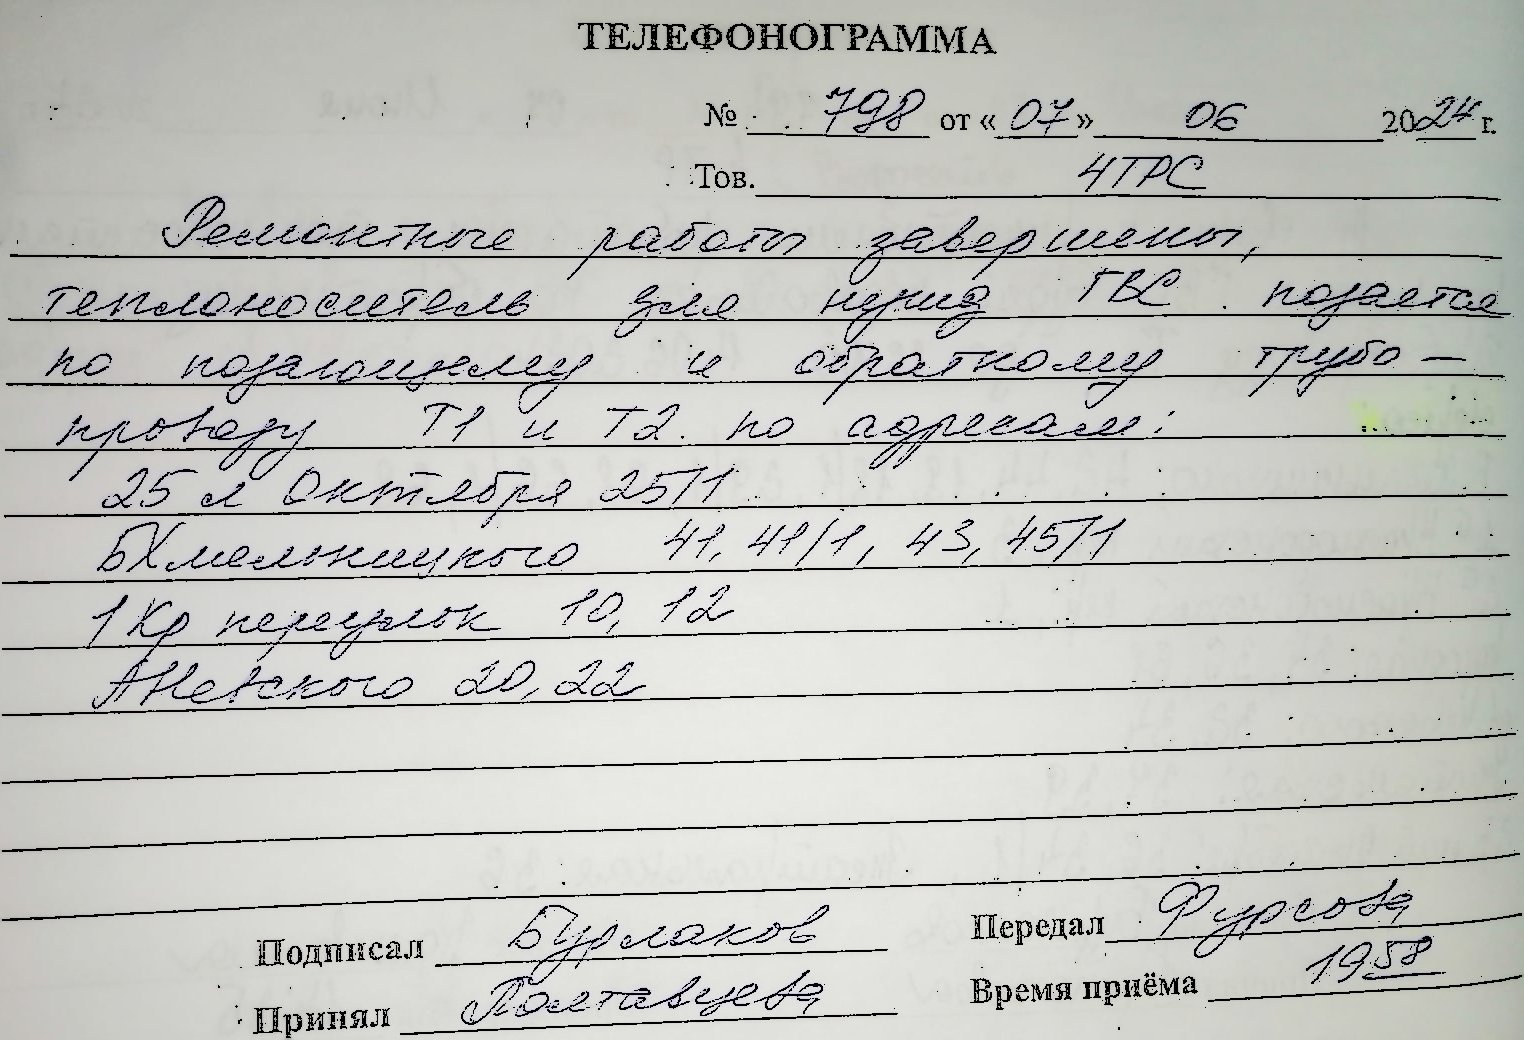 ТЕЛЕФОНОГРАММА
№ 798 от «07» 06 2024 г.
Тов. 4ТРС
Ремонтные работы завершены,
теплоноситель для нужд ГВС подается
по подающему и обратному трубо-
проводу Т1 и Т2 по адресам:
25 л Октября 25/1
Б Хмельницкого 41, 41/1, 43, 45/1
1 Кр переулок 10, 12
А Невского 20, 22
Подписал Бурлаков Передал Фурсова
Принял Полтавцева Время приёма 19 58